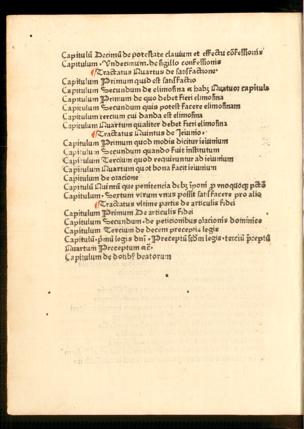 Capitulũ Decimũ de potestate clauium et effectu cõfessionis
Capitulum · Undecimum · de sigillo confessionis
¶Tractatus Quartus de satisfactione ·
Capitulum Primum quid est satisfactio
Capitulum Secundum de elimosina & habꝫ Quatuor capitula
Capitulum Primum de quo debet fieri elimosina
Capitulum Secundum quis potest facere elimosinam
Capitulum tercium cui danda est elimosina
Capitulum Quartum qualiter debet fieri elimosina
¶Tractatus Quintus de Ieiunio ·
Capitulum Primum quot modis dicitur ieiunium
Capitulum Secundum quando fuit institutum
Capitulum Tercium quod requiruntur ad ieiunium
Capitulum Quartum quot bona facit ieiunium
Capitulum de oracione
Capitulũ Quintũ que penitencia debꝫ pro
Capitulum · Sextum vtrum vnus possit satisfacere pro alio
¶Tractatus vltime partis de articulis fidei
Capitulum Primum De articulis fidei
Capitulum Secundum · de petitionibus oracionis dominice
Capitulum Tercium de decem preceptis legis
Capitulũ · pͥmũ legis dnͥ · Preceptũ scd̃m legis · terciũ p̃ceptũ
Quartum Preceptum &c̃ ·
Capitulum de dotibꝫ beatorum